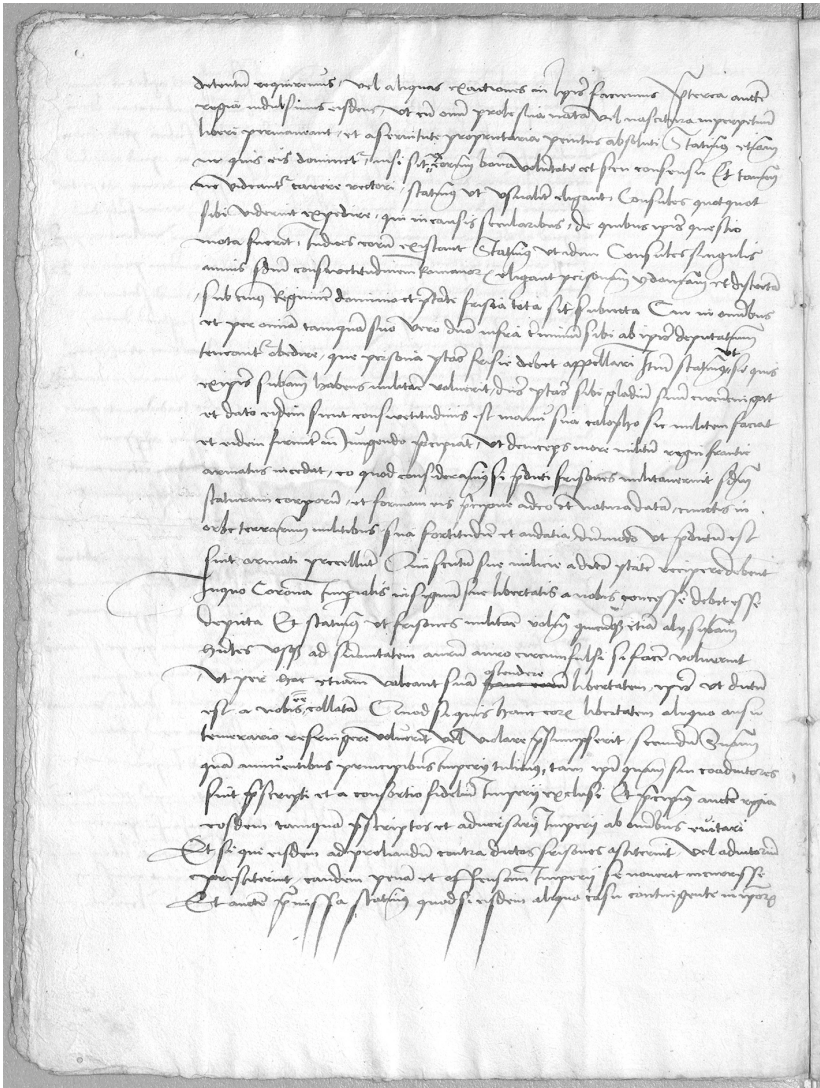 detentum requiremus, vel aliquas exactiones in ipsis faciemus Preterea aucte
regia indulsimus eisdem, ut cum omni prole sua nata vel nascitura inperpetuum
liberi permaneant, et a servitute proprietaria penitus absoluti Statuimus etiam
ne quis eis dominetur, nisi sit eorum bona voluntate et seu consensu Et tamen
ne videantur carere rectori, statuimus ut usualiter eligant, Consules quotquot
sibi viderint expedire, qui in causis secularibus, de quibus ipsis questio
mota fuerit, Iudices eorum existant Statuimus ut idem Consules singulis
annis secundum consuetudinem Romanorum, eligant personam ydoneam et discretam
sub cuius Regimine dominio et potestate frisia tota sit subiecta Cui in omnibus
et per omnia tamquam suo vero domino infra terminum sibi ab ipsis deputatum
teneantur obedire, que persona potestas frisie debet appellari Item statuimus ut si quis
ex ipsis substantiam habens militare voluerit, dictus potestas sibi gladium suum circumcingat
et dato eidem sicut consuetudinis est manu sua colapho sic militem faciat
et eidem firmiter iniungendo precipiat, ut deinceps more militum regni francie
armatus incedat, eo quod consideramus si predicti frisones militaverint secundum
staturam corporum, et formam eis propriam a deo et natura datam, cunctis in
orbe terrarum militibus sua fortitudine et audatia, dummodo ut predictum est
sint armati precellunt Qui scutum sue milicie a dicta potestate recipere debent
In quo Corona Imperialis in signum sue libertatis a nobis concesse debet esse
depicta Et statuimus ut frisones militare volentes quicumque etiam aliis substantiam
habentes usque ad summitatem aurium auro circumfulsi si facere voluerint
Ut per hoc etiam valeant suam ostendere libertatem, ipsis ut dictum
est a nobis esse collatam Quod si quis hanc eorum libertatem aliquo ausu
temerario refringere voluerit vel violare presumpserit, secundum Suam
quam annuentibus principibus Imperii tulimus, tam ipsi quam sui coadiutores
sint proscripti et a consortio fidelium Imperii exclusi Et precipimus aucte regia
eosdem tamquam proscriptos et adversarios Imperii ab omnibus evitari
Et si qui eisdem ad preliandum contra dictos frisones astiterint, vel adiutorium
prestiterint, eandem penam et offensam Imperii se noverit incurrisse
Et aucte premissa statuimus quod si eisdem aliquo casu contingente in ipsorum